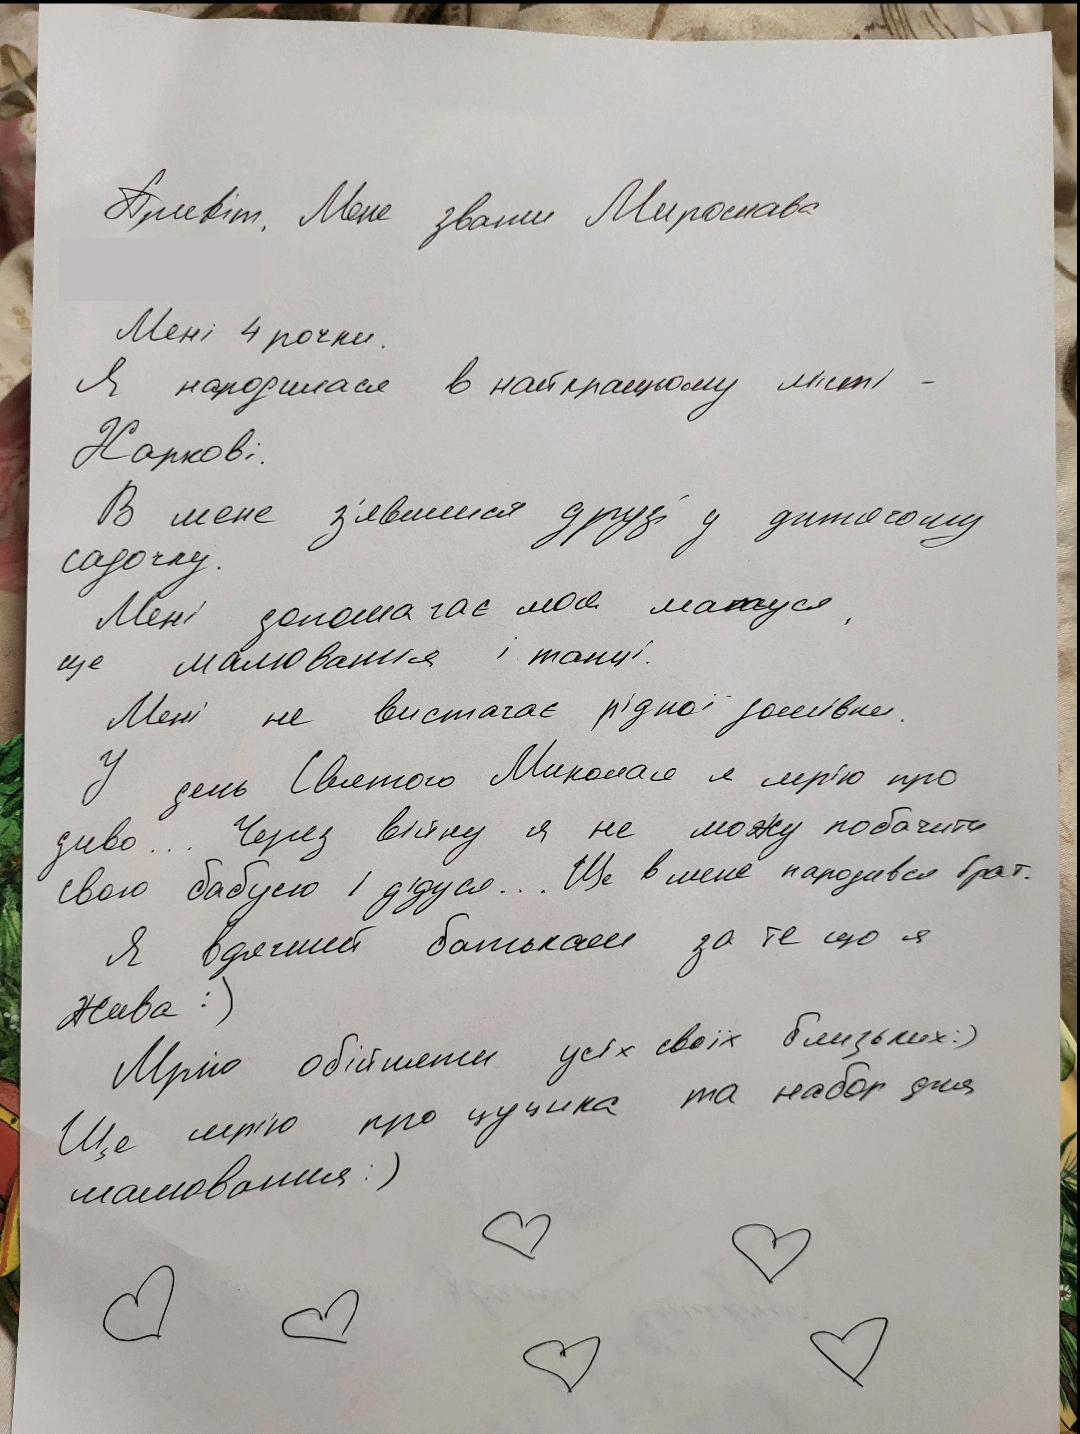 Привіт, Мене звати Мирослава
Мені 4 рочки.
Я народилася в найкращому місті -
Харкові.
В мене з'явилися друзі у дитячому
садочку.
Мені допомагає моя матуся,
ще малювання і танці.
Мені не вистачає рідної домівки.
У день Святого Миколая я мрію про
диво... Через війну я не можу побачити
свою бабусю і дідуся... Ще в мене народився брат.
Я вдячний батькам за те що я
жива :)
Мрію обійняти усіх своїх близьких:)
Ще мрію про цуцика та набор для
малювання :)